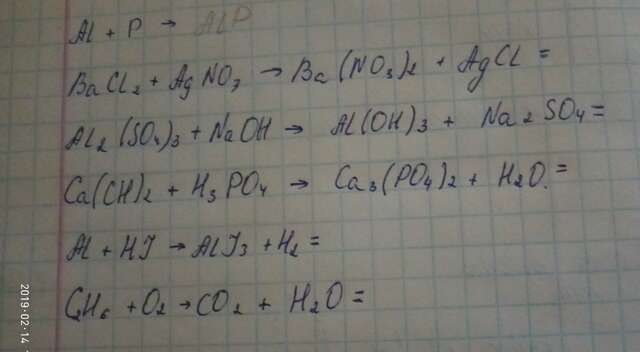 Al + P → AlP
BaCl2 + AgNO3 → Ba(NO3)2 + AgCl =
Al2(SO4)3 + NaOH → Al(OH)3 + Na2SO4 =
Ca(CH)2 + H3PO4 → Ca3(PO4)2 + H2O. =
Al + HJ → AlJ3 + H2 =
C2H6 + O2 → CO2 + H2O =
2019-02-14